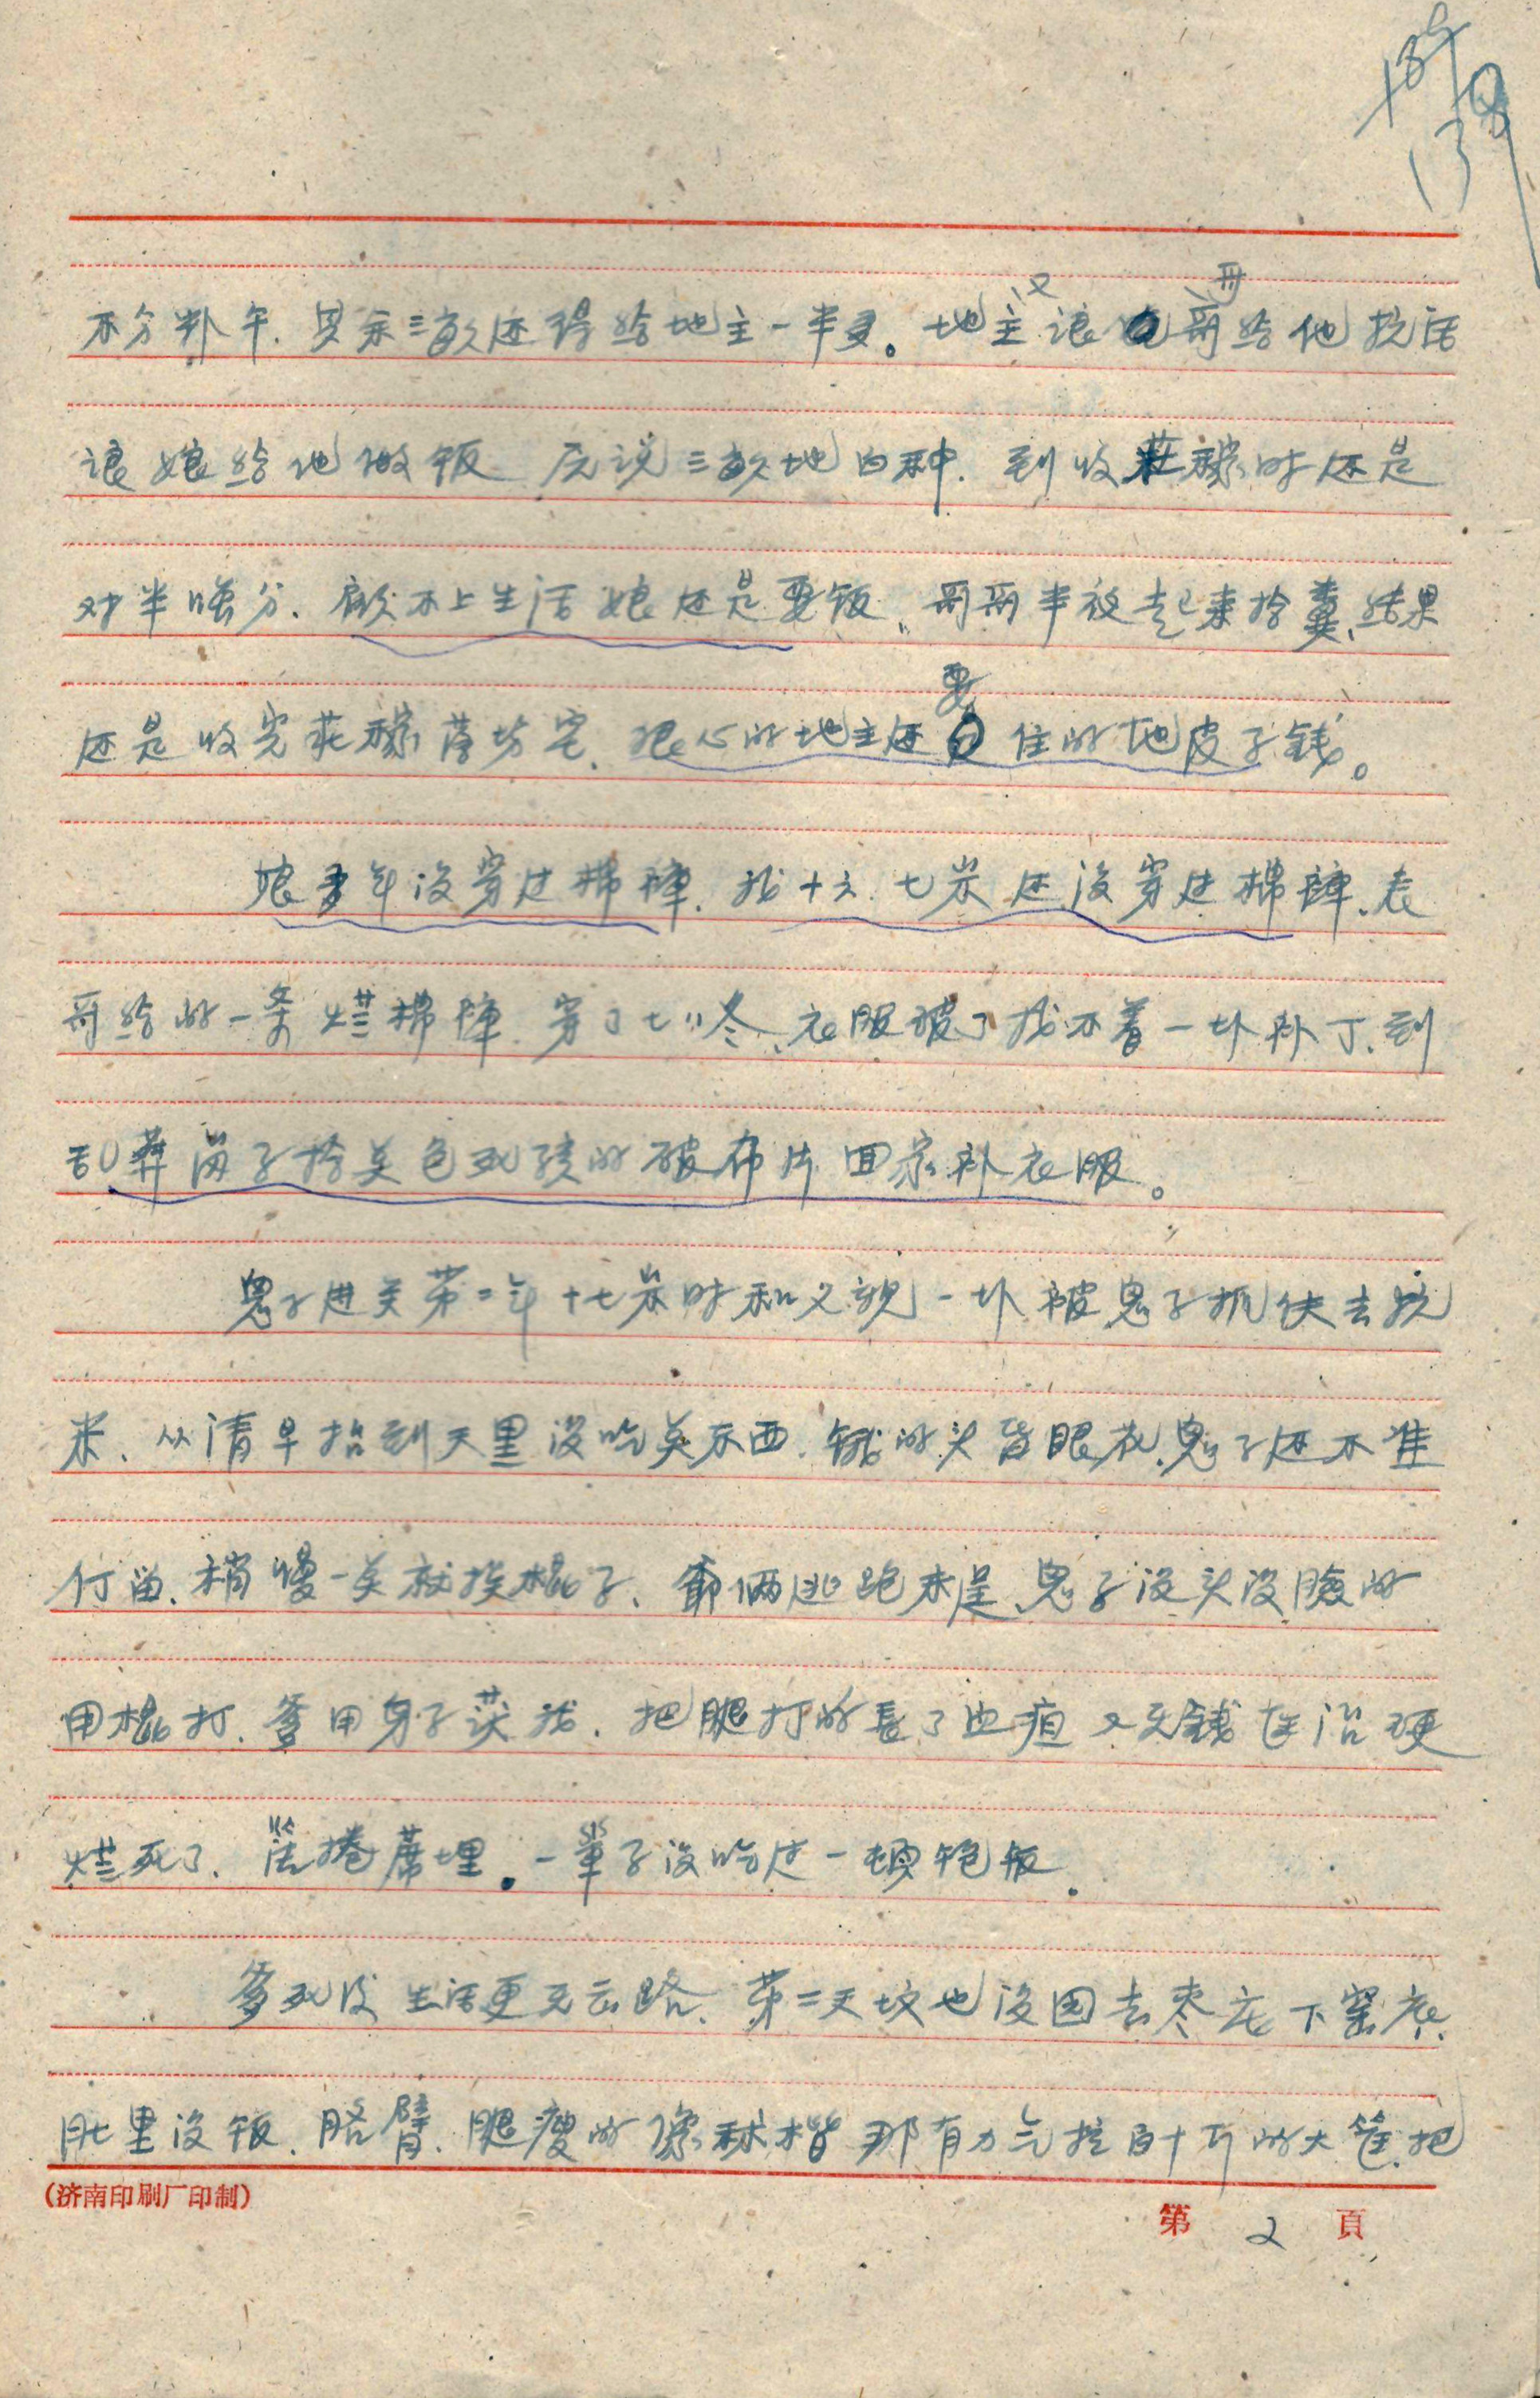 13
不分, 其余三亩还得给地主一半多。地主又讓哥哥给他抗活
讓娘给他做饭 说三亩地白种. 到收莊稼时还是
对半分、顾不上生活娘还是要饭, 哥哥半夜起来拾糞、结果
还是收完莊稼落坊宅, 狠心的地主还要住的地皮子錢。
娘多年没穿过棉褲, 我十六、七岁还没穿过棉褲、表
哥给的一条烂棉褲 穿了七八冬、衣服破了找不着一块补丁、到
乱葬崗子拾关包死孩的破布片回家补衣服。
鬼子进关第二年十七岁时和父親一块被鬼子抓伕去抗
米、从清早抬到天黑没吃关东西, 餓的头昏眼花、鬼子还不准
仃留、稍慢一关就挨棍子、爺俩逃跑未逞、鬼子没头没臉的
用棍打, 爹用身子获我, 把腿打的長了血疽 又无錢医治硬
烂死了, 箔捲蓆埋。一輩子没吃过一顿饱饭.
爹死后生活更无云路、第二天坟也没园去枣庄下窑底,
肚里没饭、胳臂、腿瘦的像秫楷 那有力气拉百十斤的大筐. 把
(济南印刷厂印制)
第 2 頁